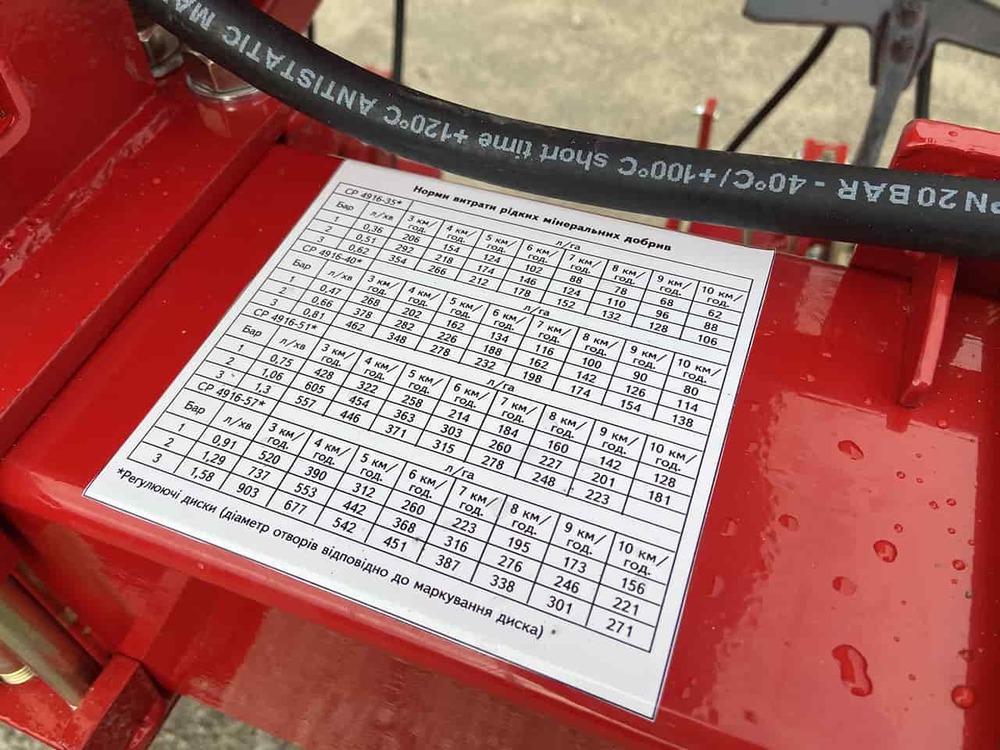 PN 20 BAR - 40°C/+100°C short time +120°C ANTISTATIC
Норми витрати рідких мінеральних добрив
СР 4916-35* л/га
Бар л/хв 3 км/год. 4 км/год. 5 км/год. 6 км/год. 7 км/год. 8 км/год. 9 км/год. 10 км/год.
1 0,36 206 154 124 102 88 78 68 62
2 0,51 292 218 174 146 124 110 96 88
3 0,62 354 266 212 178 152 132 128 106
СР 4916-40* л/га
Бар л/хв 3 км/год. 4 км/год. 5 км/год. 6 км/год. 7 км/год. 8 км/год. 9 км/год. 10 км/год.
1 0,47 268 202 162 134 116 100 90 80
2 0,66 378 282 226 188 162 142 126 114
3 0,81 462 348 278 232 198 174 154 138
СР 4916-51* л/га
Бар л/хв 3 км/год. 4 км/год. 5 км/год. 6 км/год. 7 км/год. 8 км/год. 9 км/год. 10 км/год.
1 0,75 428 322 258 214 184 160 142 128
2 1,06 605 454 363 303 260 227 201 181
3 1,3 557 446 371 315 278 248 223
СР 4916-57* л/га
Бар л/хв 3 км/год. 4 км/год. 5 км/год. 6 км/год. 7 км/год. 8 км/год. 9 км/год. 10 км/год.
1 0,91 520 390 312 260 223 195 173 156
2 1,29 737 553 442 368 316 276 246 221
3 1,58 903 677 542 451 387 338 301 271
*Регулюючі диски (діаметр отворів відповідно до маркування диска)